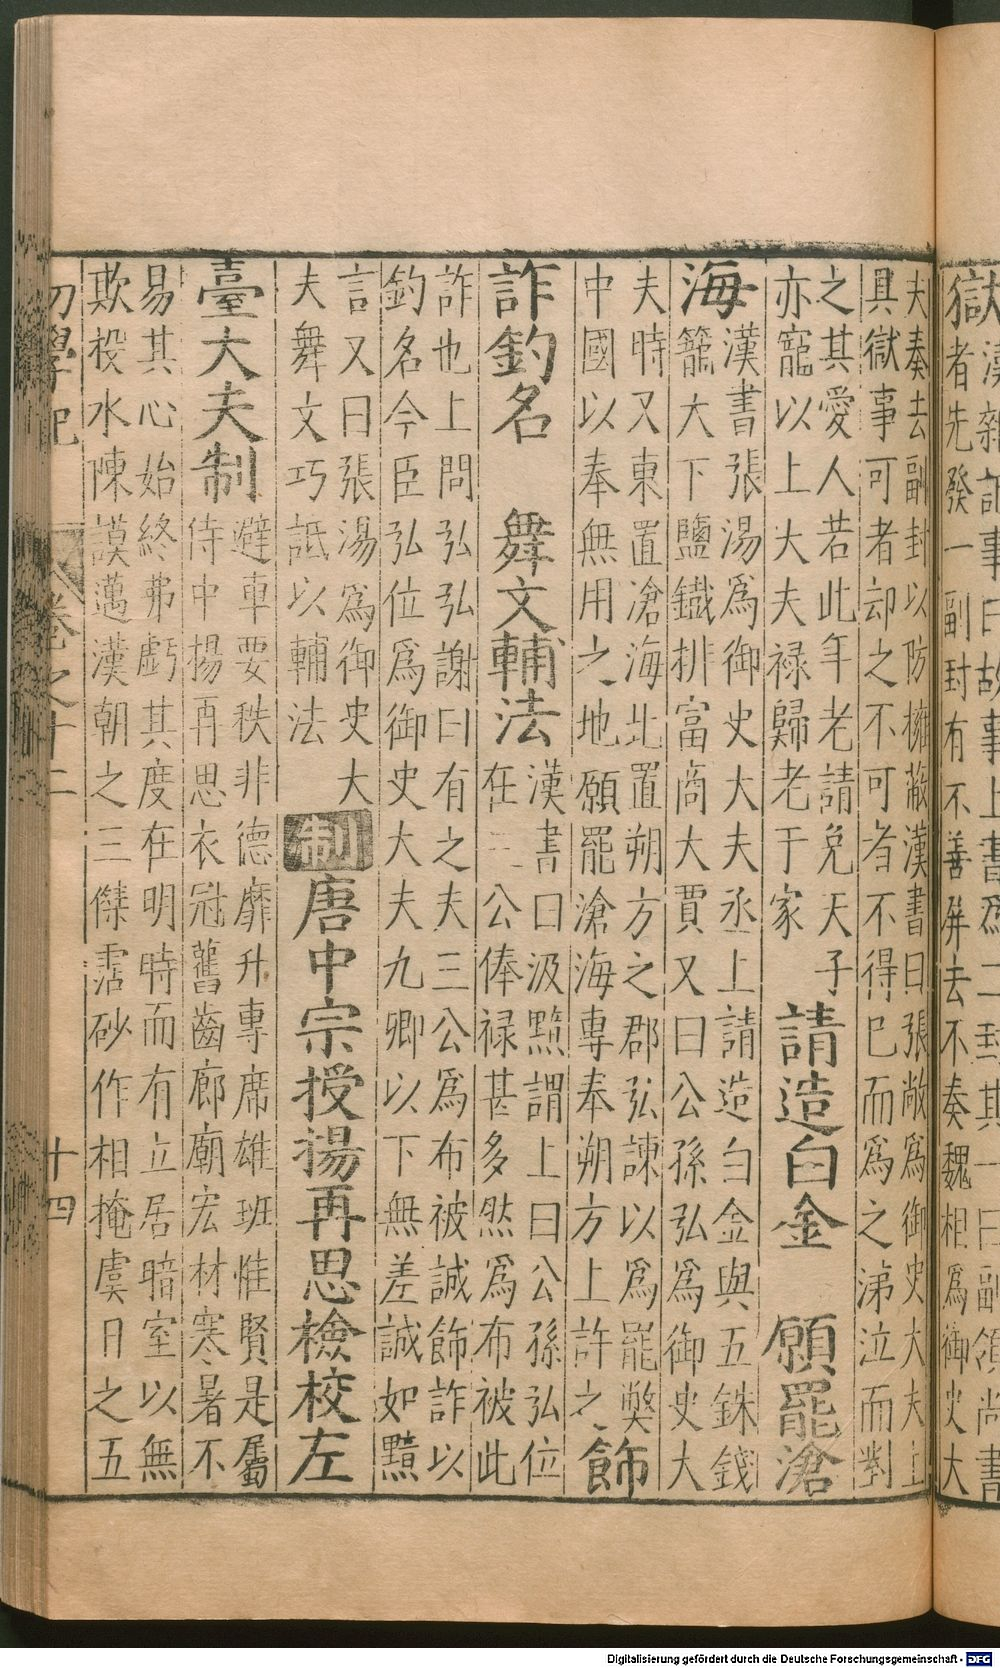 漢雜記事曰故事上書爲二封其一曰副領尚書
獄者先發一副封有不善屏去不奏魏相爲御史大
夫奏去副封以防擁蔽漢書曰張敞爲御史大夫上
具獄事可者却之不可者不得已而爲之涕泣而對
之其愛人若此年老請免天子
亦寵以上大夫禄歸老于家
請造白金 願罷滄
海
漢書張湯爲御史大夫丞上請造白金與五銖錢
籠大下鹽鐵排富商大賈又曰公孫弘爲御史大
夫時又東置滄海北置朔方之郡弘諫以爲罷獘
中國以奉無用之地願罷滄海專奉朔方上許之
飾
詐釣名 舞文輔法
漢書曰汲黯謂上曰公孫弘位
在三公俸禄甚多然爲布被此
詐也上問弘弘謝曰有之夫三公爲布被誠飾詐以
釣名今臣弘位爲御史大夫九卿以下無差誠如黯
言又曰張湯爲御史大
夫舞文巧詆以輔法
制
唐中宗授揚再思檢校左
臺大夫制
避車要秩非德靡升專席雄班惟賢是屬
侍中揚再思衣冠舊齒廊廟宏材寒暑不
易其心始終弗虧其度在明時而有立居暗室以無
欺投水陳謨邁漢朝之三傑霑砂作相掩虞日之五
初學記 卷之十二 十四
Digitalisierung gefördert durch die Deutsche Forschungsgemeinschaft - DFG